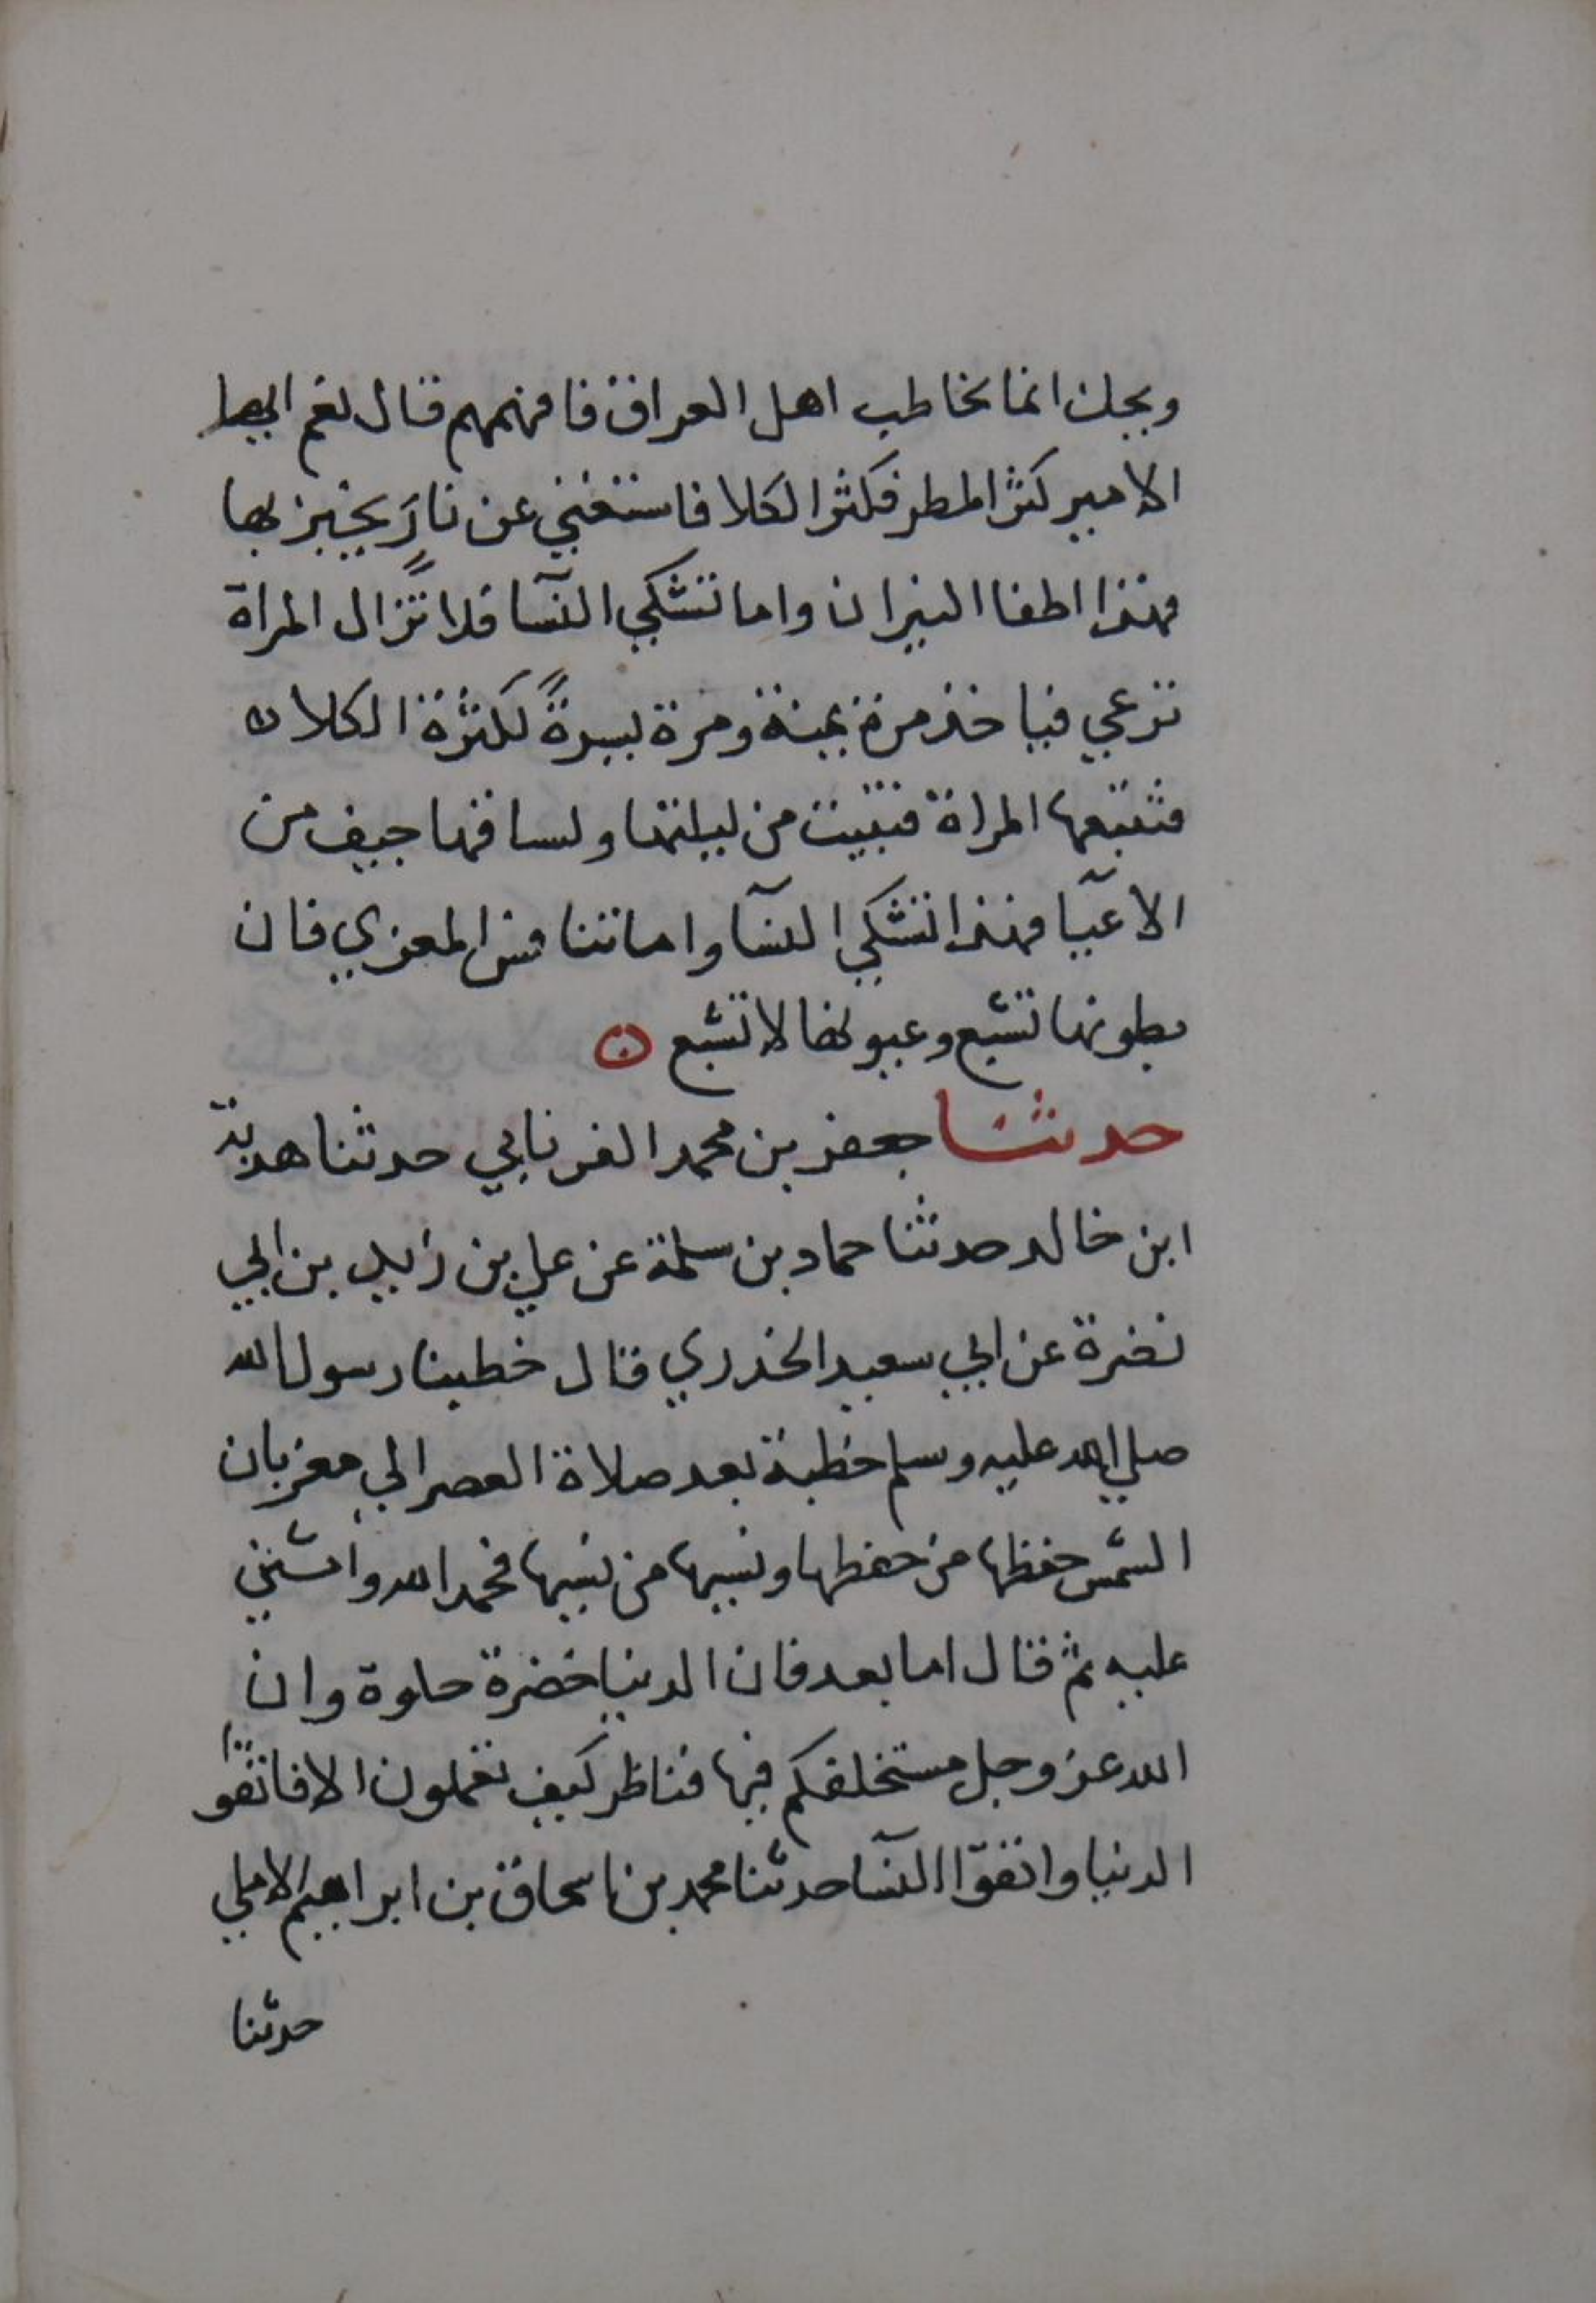 ويحك انما تخاطب اهل العراق فافهمهم قال نعم ايها
الامير كثر المطر فكثر الكلا فاستغني عن نار يختبز بها
فهذا اطفا النيران واما تشكي النسآ فلا تزال المراة
ترعي فياخذ مرة يمنة ومرة يسرةً لكثرة الكلا ن
فتتبعها المراة فتبيت من ليلتها ولسا فها جيف من
الاعيآ فهذا تشكي النسآ واما تنافس المعزي فان
بطونها تشبع وعيونها لا تشبع ن
حدثنا جعفر بن محمد الفريابي حدثنا هدبة
ابن خالد حدثنا حماد بن سلمة عن علي بن زيد بن ابي
نضرة عن ابي سعيد الخدري قال خطبنا رسول الله
صلي الله عليه وسلم خطبة بعد صلاة العصر الي مغربان
الشمس حفظها من حفظها ونسيها من نسيها فحمد الله واثني
عليه ثم قال اما بعد فان الدنيا خضرة حلوة وان
الله عز وجل مستخلفكم فيها فناظر كيف تعملون الا فاتقوا
الدنيا واتقوا النسآ حدثنا محمد بن اسحاق بن ابراهيم الاملي
حدثنا